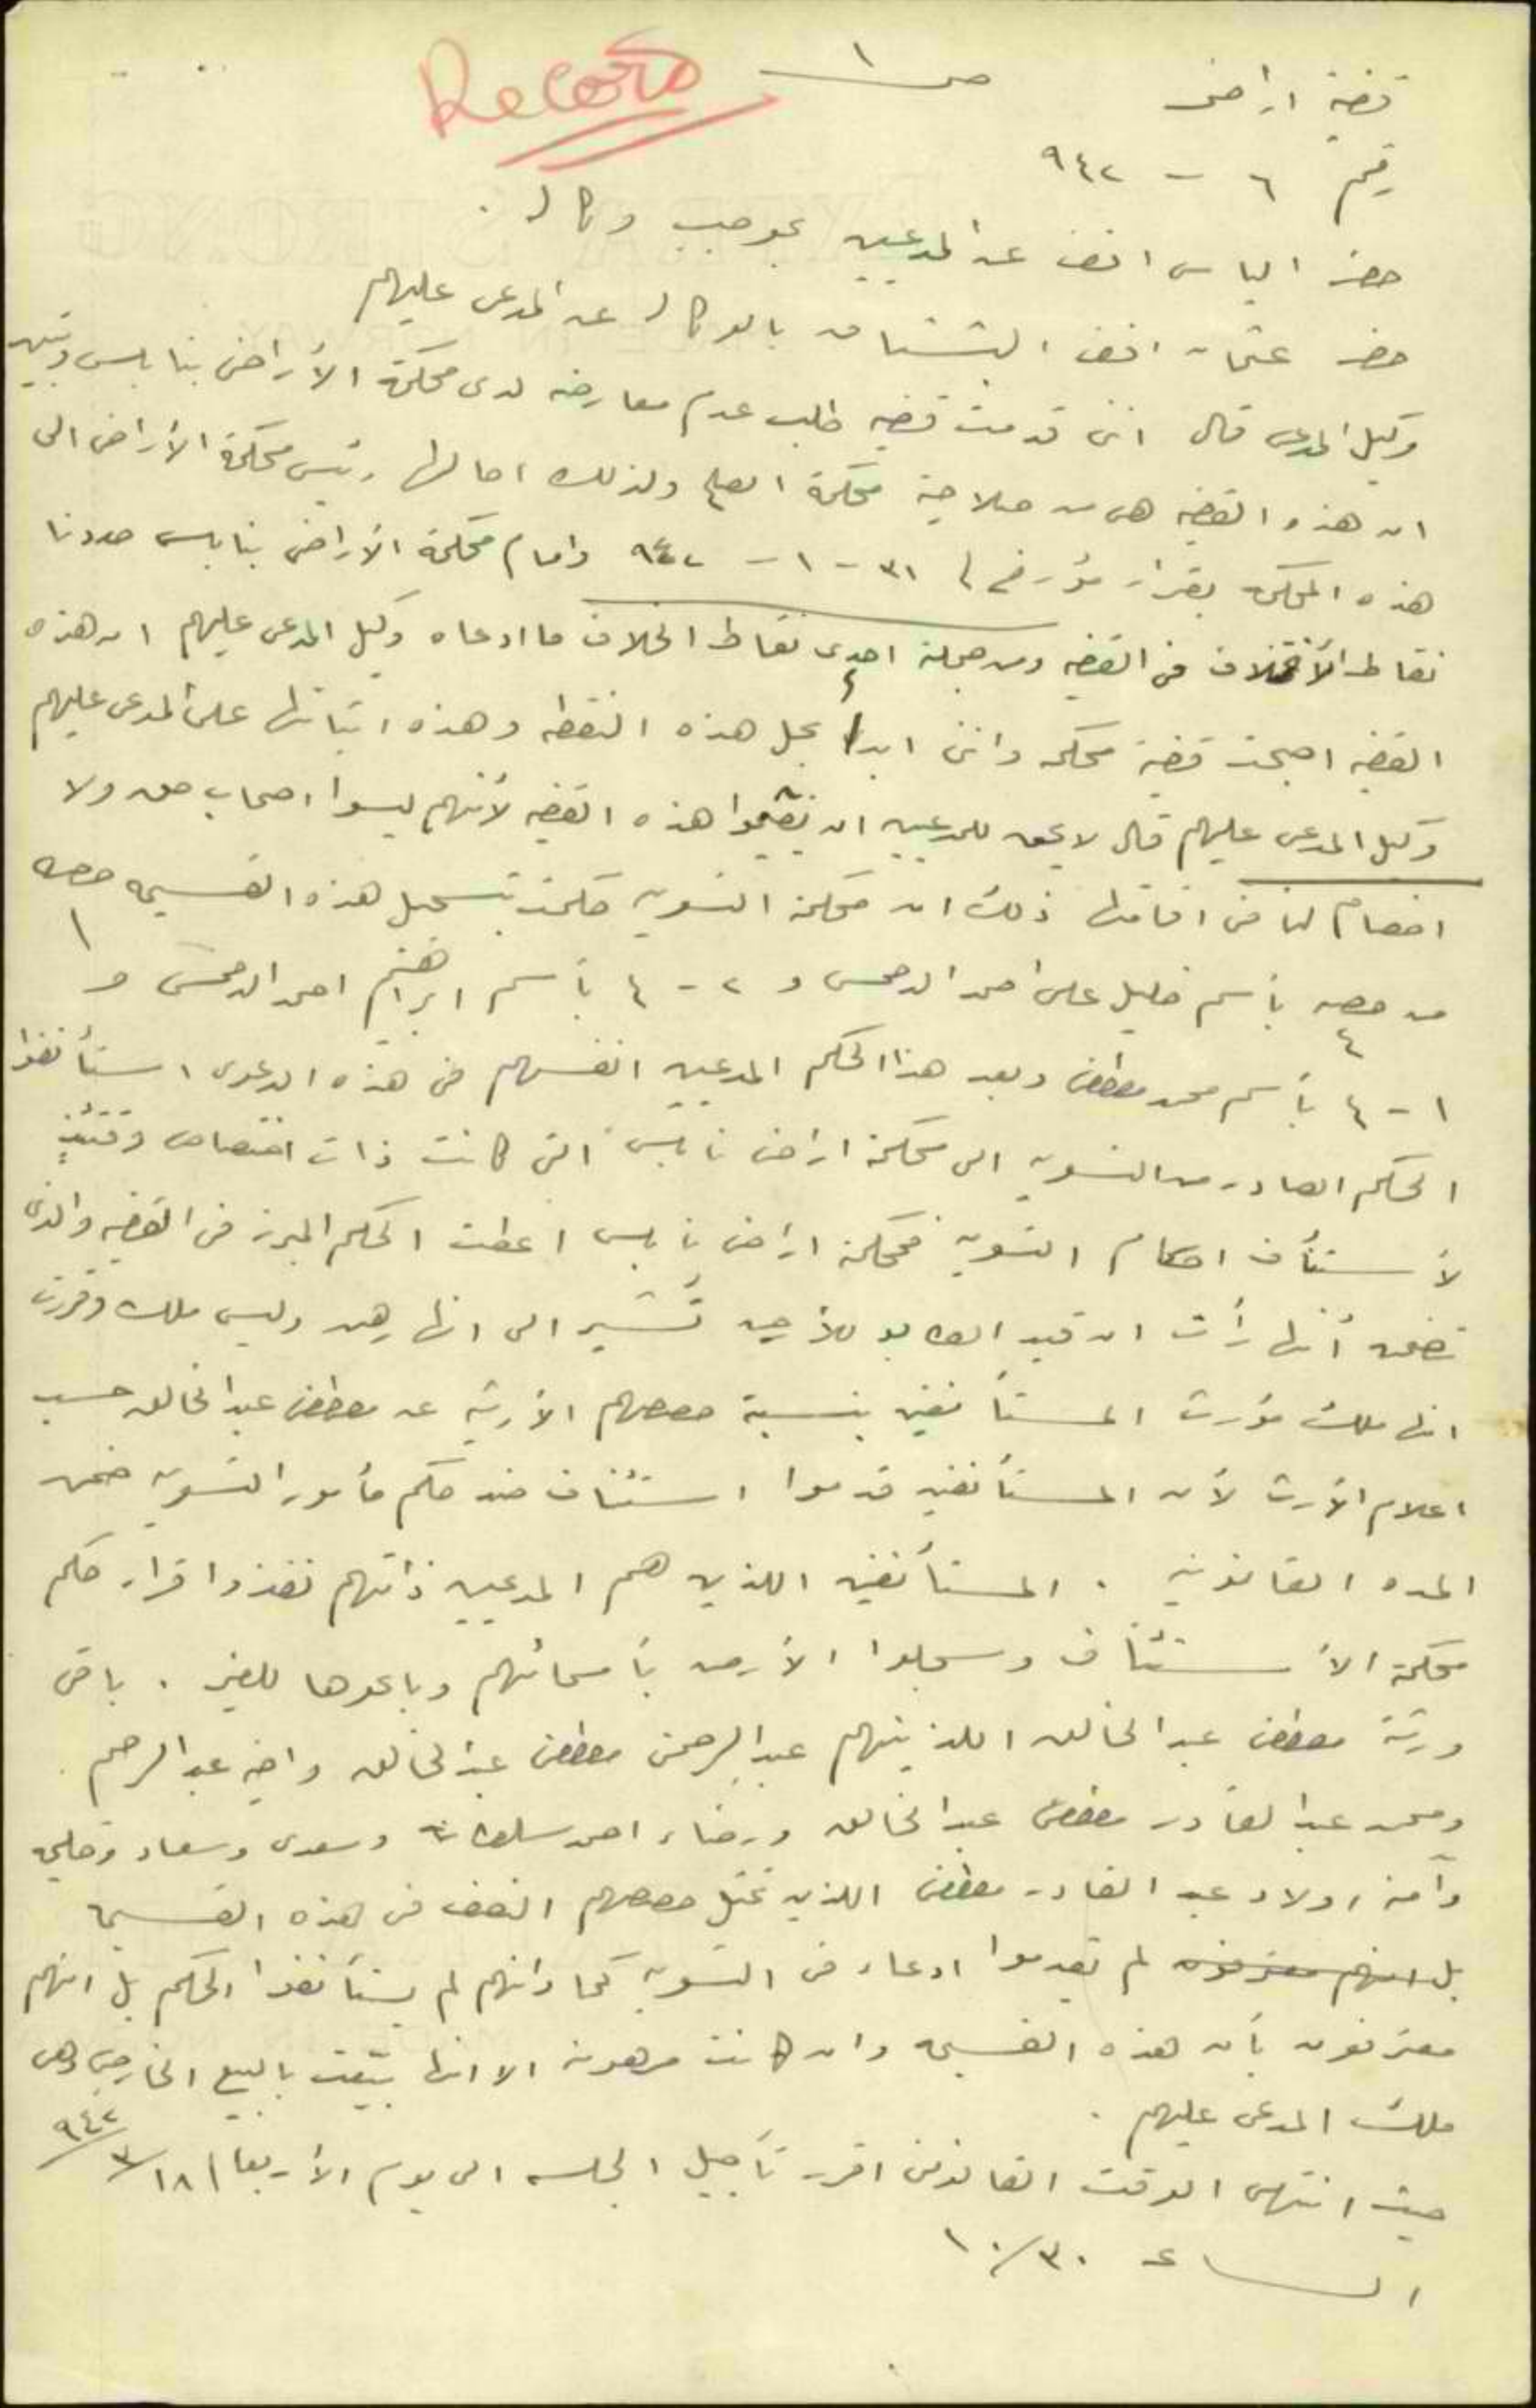 Records
ص ١
قضية اراضي
رقم ٦ - ٩٤٢
حضر الياس افندي عن المدعيين بموجب وكاله .
حضر عثمان افندي البشتاق بالوكاله عن المدعى عليهم
وكيل المدعي قال انني قدمت قضيه طلب عدم معارضه لدى محكمة الأراضي بنابلس وتبين
ان هذه القضيه هي من صلاحية محكمة الصلح ولذلك احالها رئيس محكمة الأراضي الى
هذه المحكمه بقرار مؤرخ في ٣١ - ١ - ٩٤٢ وامام محكمة الأراضي بنابلس حددنا
نقاط الأختلاف في القضيه ومن جملة احدى نقاط الخلاف ما ادعاه وكيل المدعى عليهم ان هذه
القضيه اصبحت قضية محكمه وانني ابدأ بحل هذه النقطه وهذه اثباتها على المدعى عليهم
وكيل المدعى عليهم قال لا يحق للمدعيين ان يقيموا هذه القضيه لأنهم ليسوا اصحاب حق ولا
اخصام لنا في اقامتها ذلك ان محكمة التسويه حكمت بتسجيل هذه القسيمه حصه ١
من حصه ٤ بأسم خليل علي احمد الدحمس و ٢ - ٤ بأسم ابراهيم احمد الدحمس و
١ - ٤ بأسم محمد مصطفى وبعد هذا الحكم المدعيين انفسهم في هذه الدعوى استأنفوا
الحكم الصادر من التسويه الى محكمة اراضي نابلس التي كانت ذات اختصاص وقتئذٍ
لأستئناف احكام التسويه فمحكمة اراضي نابلس اعطت الحكم المبرز في القضيه والذي
تضمن أنها رأت ان قيد الطابو للأرض تُشير الى انها رهن وليس ملك وقررت
انها ملك مؤرث المستأنفين بنسبة حصصهم الأرثيه عن مصطفى عبد الخالق حسب
اعلام الأرث لأن المستأنفين قدموا استئناف ضد حكم مأمور التسويه ضمن
المده القانونيه . المستأنفين اللذين هم المدعيين ذاتهم نفذوا قرار حكم
محكمة الأستئناف وسجلوا الأرض بأسمائهم وباعوها للغير . باقي
ورثة مصطفى عبد الخالق اللذينهم عبد الرحمن مصطفى عبد الخالق واخيه عبد الرحيم
ومحمد عبد القادر مصطفى عبد الخالق ورضاء احمد سلطانه وسعدى وسعاد وحليمه
وآمنه اولاد عبد القادر مصطفى اللذين تمثل حصصهم النصف في هذه القسيمه
بل انهم معترفون لم يقدموا ادعاء في التسويه كما وانهم لم يستأنفوا الحكم بل انهم
معترفون بأن هذه القسيمه وان كانت مرهونه الا انها بيعت بالبيع الخارجي وهي
ملك المدعى عليهم .
حيث انتهى الوقت القانوني اقرر تأجيل الجلسه الى يوم الأربعا ١٨/٣/٩٤٢
الساعه ١٠/٣٠